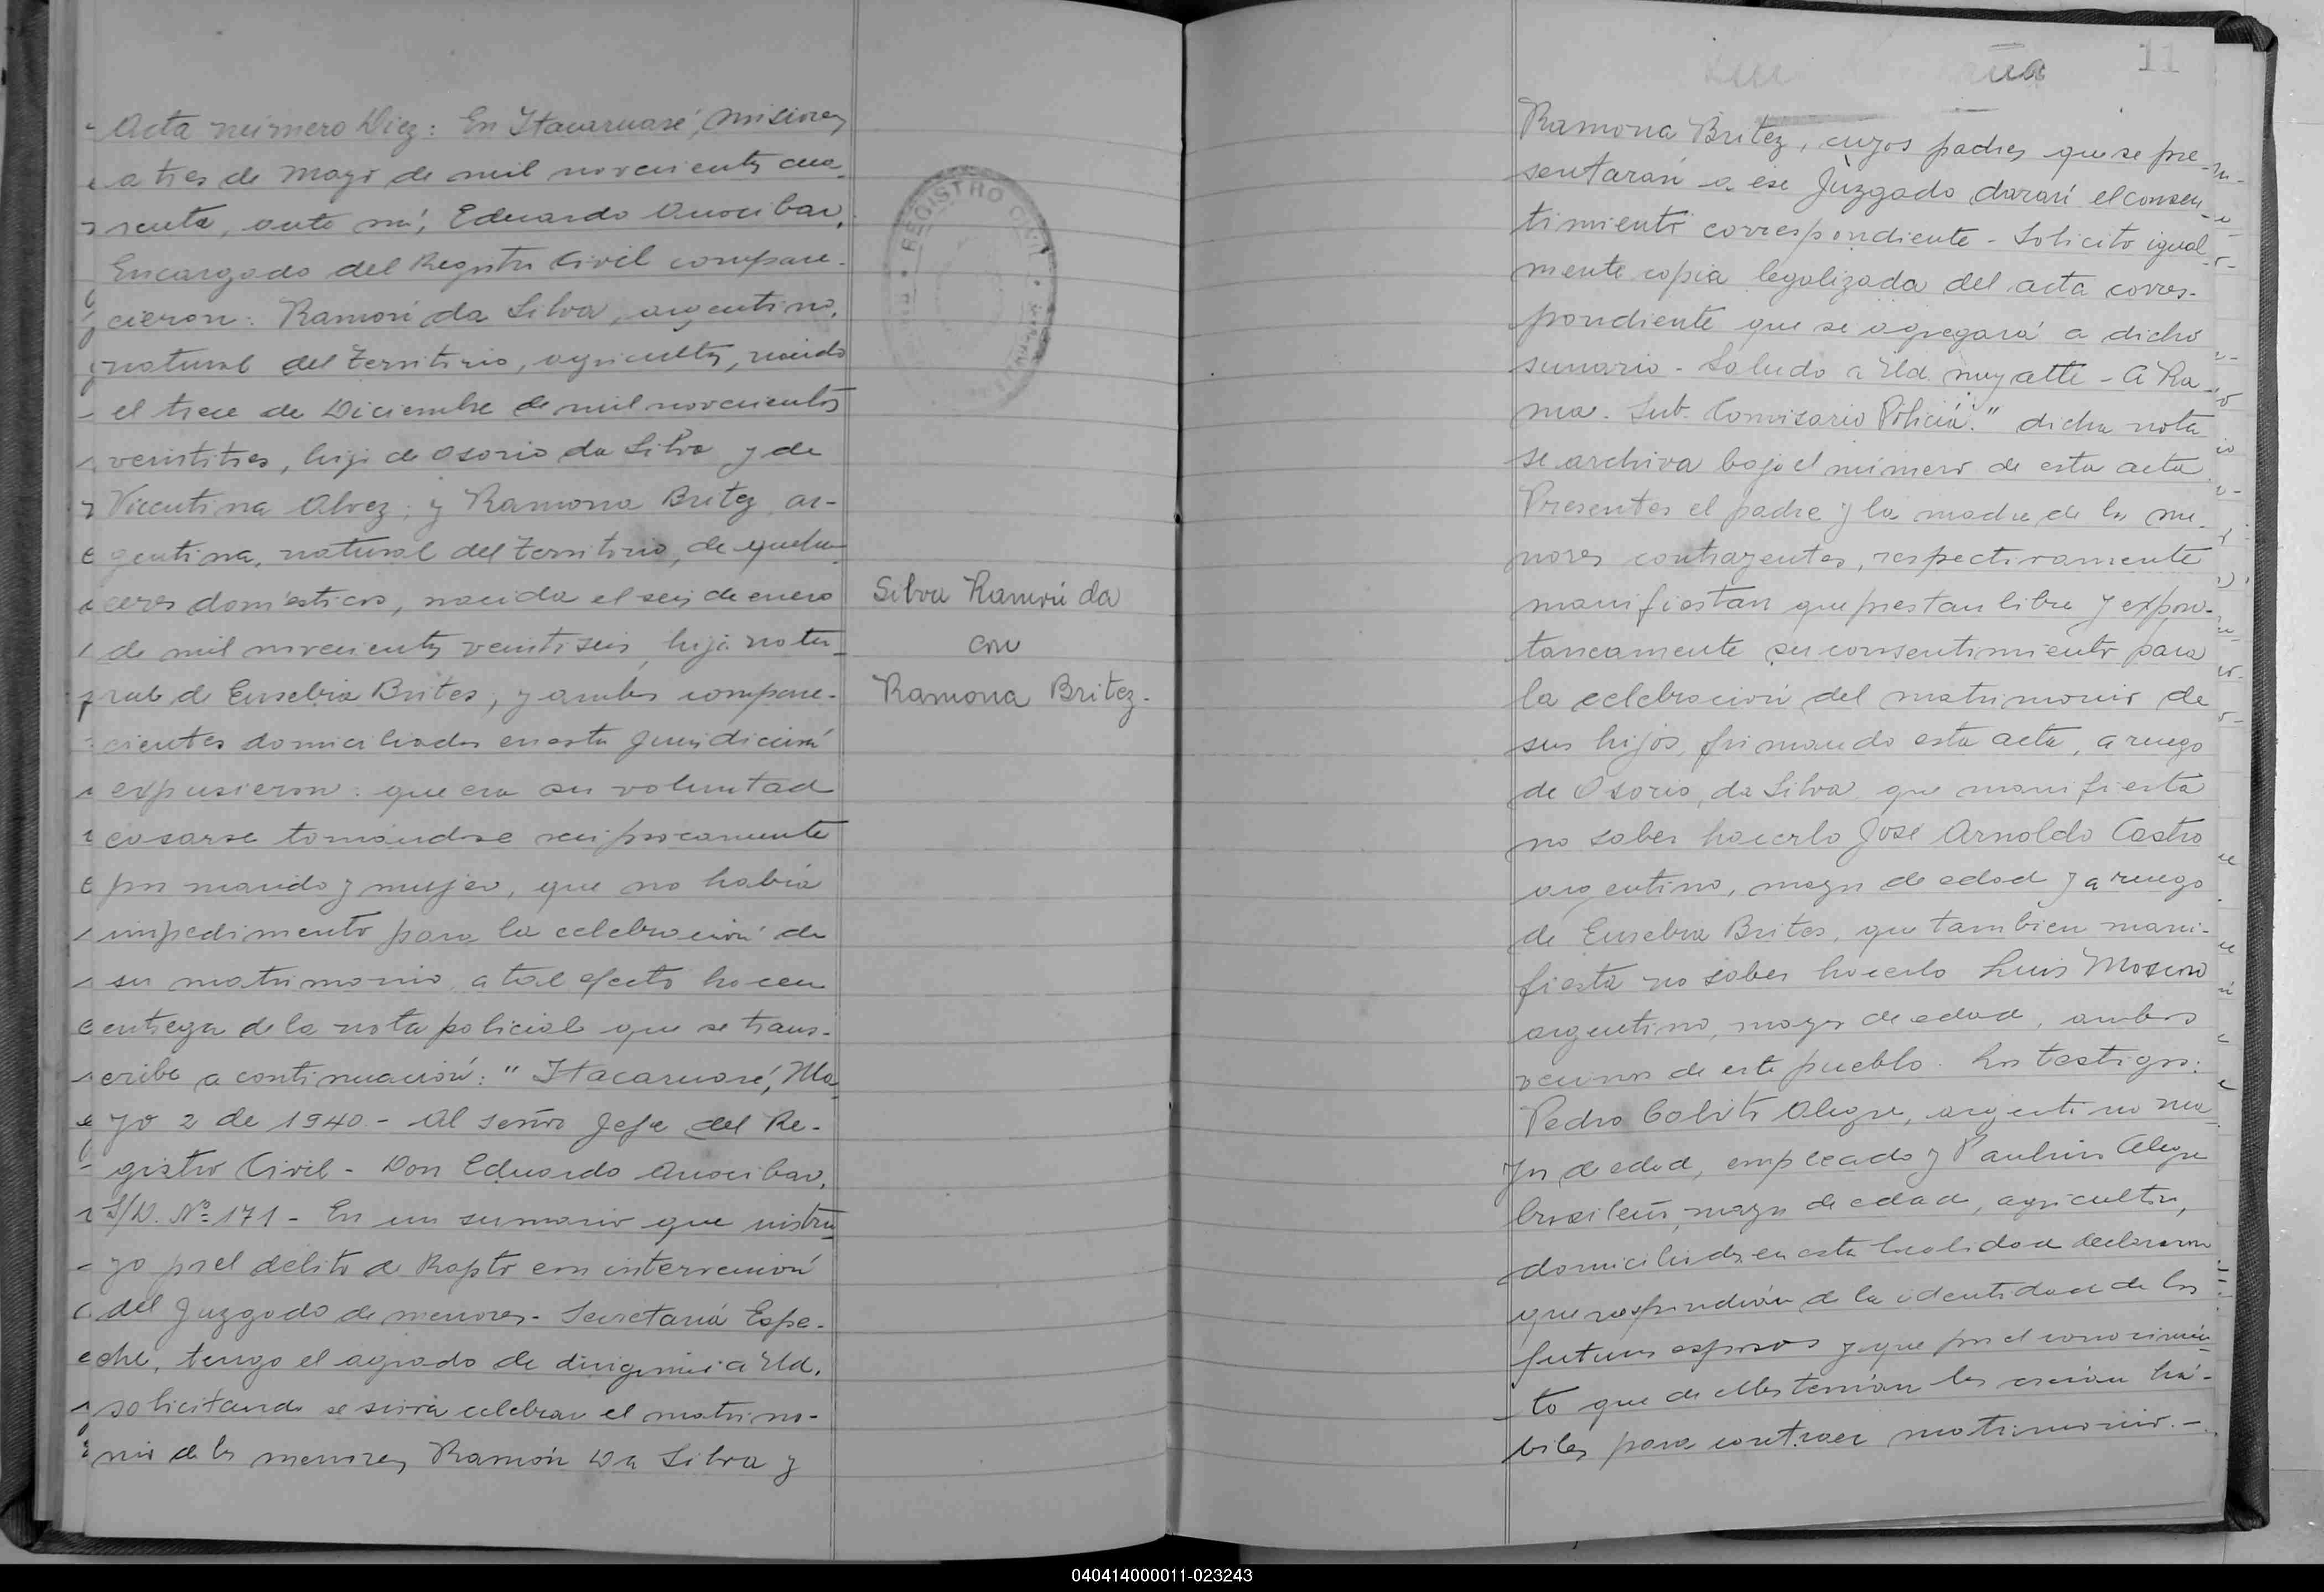 Acta número Diez: En Itacaruaré, Misiones
a tres de Mayo de mil novecientos cua-
renta, ante mí, Eduardo Anocibar,
Encargado del Registro Civil compare-
cieron: Ramón da Silva, argentino,
natural del Territorio, agricultor, nacido
el trece de Diciembre de mil novecientos
veintitres, hijo de Osorio da Silva y de
Vicentina Alvez; y Ramona Britez, ar-
gentina, natural del Territorio, de queha-
ceres domésticos, nacida el seis de enero
de mil novecientos veintiseis, hija natu-
ral de Eusebia Brites, y ambos compare-
cientes domiciliados en esta jurisdicción
expusieron: que era su voluntad
casarse tomándose reciprocamente
por marido y mujer, que no había
impedimento para la celebración de
su matrimonio, a tal efecto hacen
entrega de la nota policial que se trans-
cribe a continuación: "Itacaruaré, Ma-
yo 2 de 1940.- Al señor Jefe del Re-
gistro Civil - Don Eduardo Anocibar,
S/D. Nº 171 - En un sumario que instru-
yo por el delito de Rapto con intervención
del Juzgado de menores - Secretaría Espe-
che, tengo el agrado de dirigirme a Ud.
solicitando se sirva celebrar el matrimo-
nio de los menores Ramón Da Silva y
REGISTRO CIVIL
Silva Ramón da
con
Ramona Britez.
11
Ramona Britez, cuyos padres que se pre-
sentarán a ese Juzgado darán el consen-
timiento correspondiente - Solicito igual-
mente copia legalizada del acta corres-
pondiente que se agregará a dicho
sumario - Saludo a Ud. muy atte - A Ra-
ma. Sub. Comisario Policía." dicha nota
se archiva bajo el número de esta acta.
Presentes el padre y la madre de los me-
nores contrayentes, respectivamente
manifiestan que prestan libre y expon-
taneamente su consentimiento para
la celebración del matrimonio de
sus hijos, firmando esta acta, a ruego
de Osorio, da Silva que manifiesta
no saber hacerlo José Arnoldo Castro
argentino, mayor de edad y a ruego
de Eusebia Brites, que tambien mani-
fiesta no saber hacerlo Luis
argentino, mayor de edad, ambos
vecinos de este pueblo. Los testigos:
Pedro Alegre, argentino ma-
yor de edad, empleado y Paulino Alegre
brasileño, mayor de edad, agricultor,
domiciliados en esta localidad declararon
que respondian de la identidad de los
futuros esposos y que por el conocimien-
to que de ellos tenían los creían há-
biles para contraer matrimonio.-
040414000011-023243